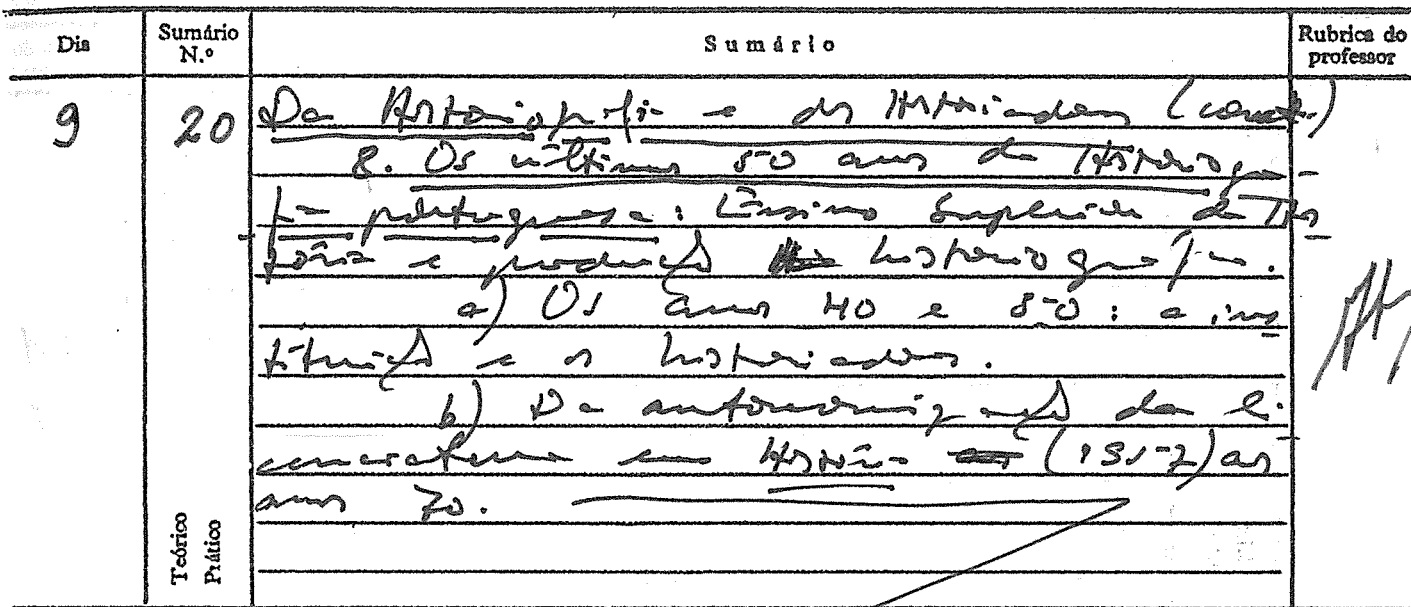 Dia
Sumário N.º
Sumário
Rubrica do professor
9
20
Da Historiografia e dos Historiadores (cont.)
8. Os últimos 50 anos da Historiogra-
fia portuguesa: Ensino Superior da His
tória e produção historiográfica.
a) Os anos 40 e 50: a ins
tituição e os historiadores.
b) Da autonomização da li-
cenciatura em História (1957) aos
anos 70.
Teórico
Prático